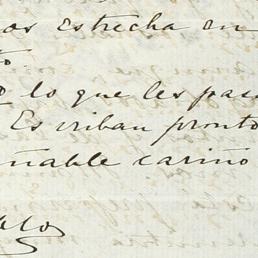 os estrecha en
to.
lo que les pasa
Escriban pronto
ñable cariño
blo